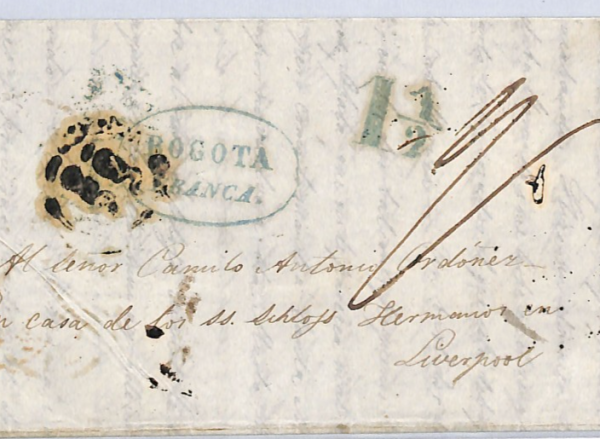 BOGOTA
FRANCA.
1 1/2
Al Señor Camilo Antonio Ordóñez
En casa de los SS. Schloss Hermanos en
Liverpool